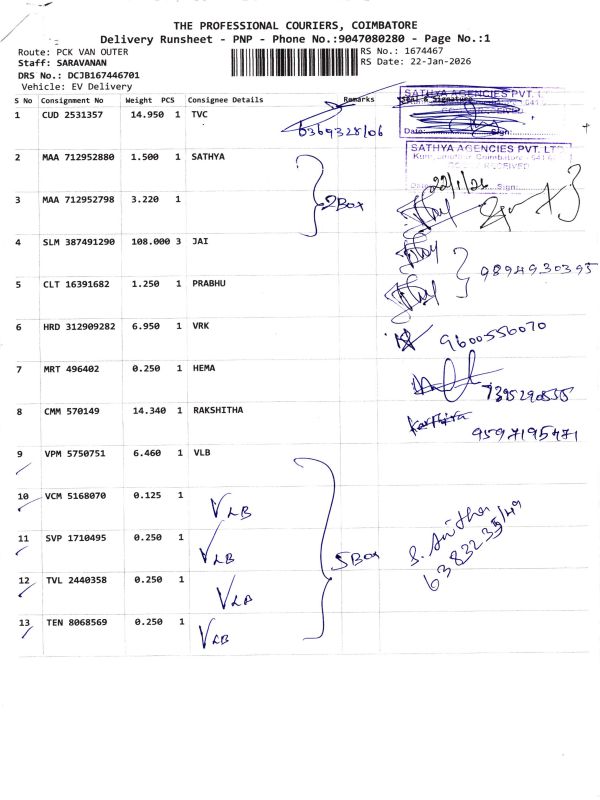 THE PROFESSIONAL COURIERS, COIMBATORE
Delivery Runsheet - PNP - Phone No.:9047080280 - Page No.:1
Route: PCK VAN OUTER
RS No.: 1674467
Staff: SARAVANAN
RS Date: 22-Jan-2026
DRS No.: DCJB167446701
Vehicle: EV Delivery
S No Consignment No Weight PCS Consignee Details Remarks Seal & Signature
SATHYA AGENCIES PVT. LTD
1 CUD 2531357 14.950 1 TVC
6369328106
Date: Sign:
SATHYA AGENCIES PVT. LTD
2 MAA 712952880 1.500 1 SATHYA
22/1/26 Sign:
3 MAA 712952798 3.220 1
2Box
4 SLM 387491290 108.000 3 JAI
9894930395
5 CLT 16391682 1.250 1 PRABHU
6 HRD 312909282 6.950 1 VRK
9600556070
7 MRT 496402 0.250 1 HEMA
8 CMM 570149 14.340 1 RAKSHITHA
Karthika
9597195471
9 VPM 5750751 6.460 1 VLB
10 VCM 5168070 0.125 1 VLB
11 SVP 1710495 0.250 1 VLB
5Box
S. Anitha
12 TVL 2440358 0.250 1 VLB
13 TEN 8068569 0.250 1 VLB